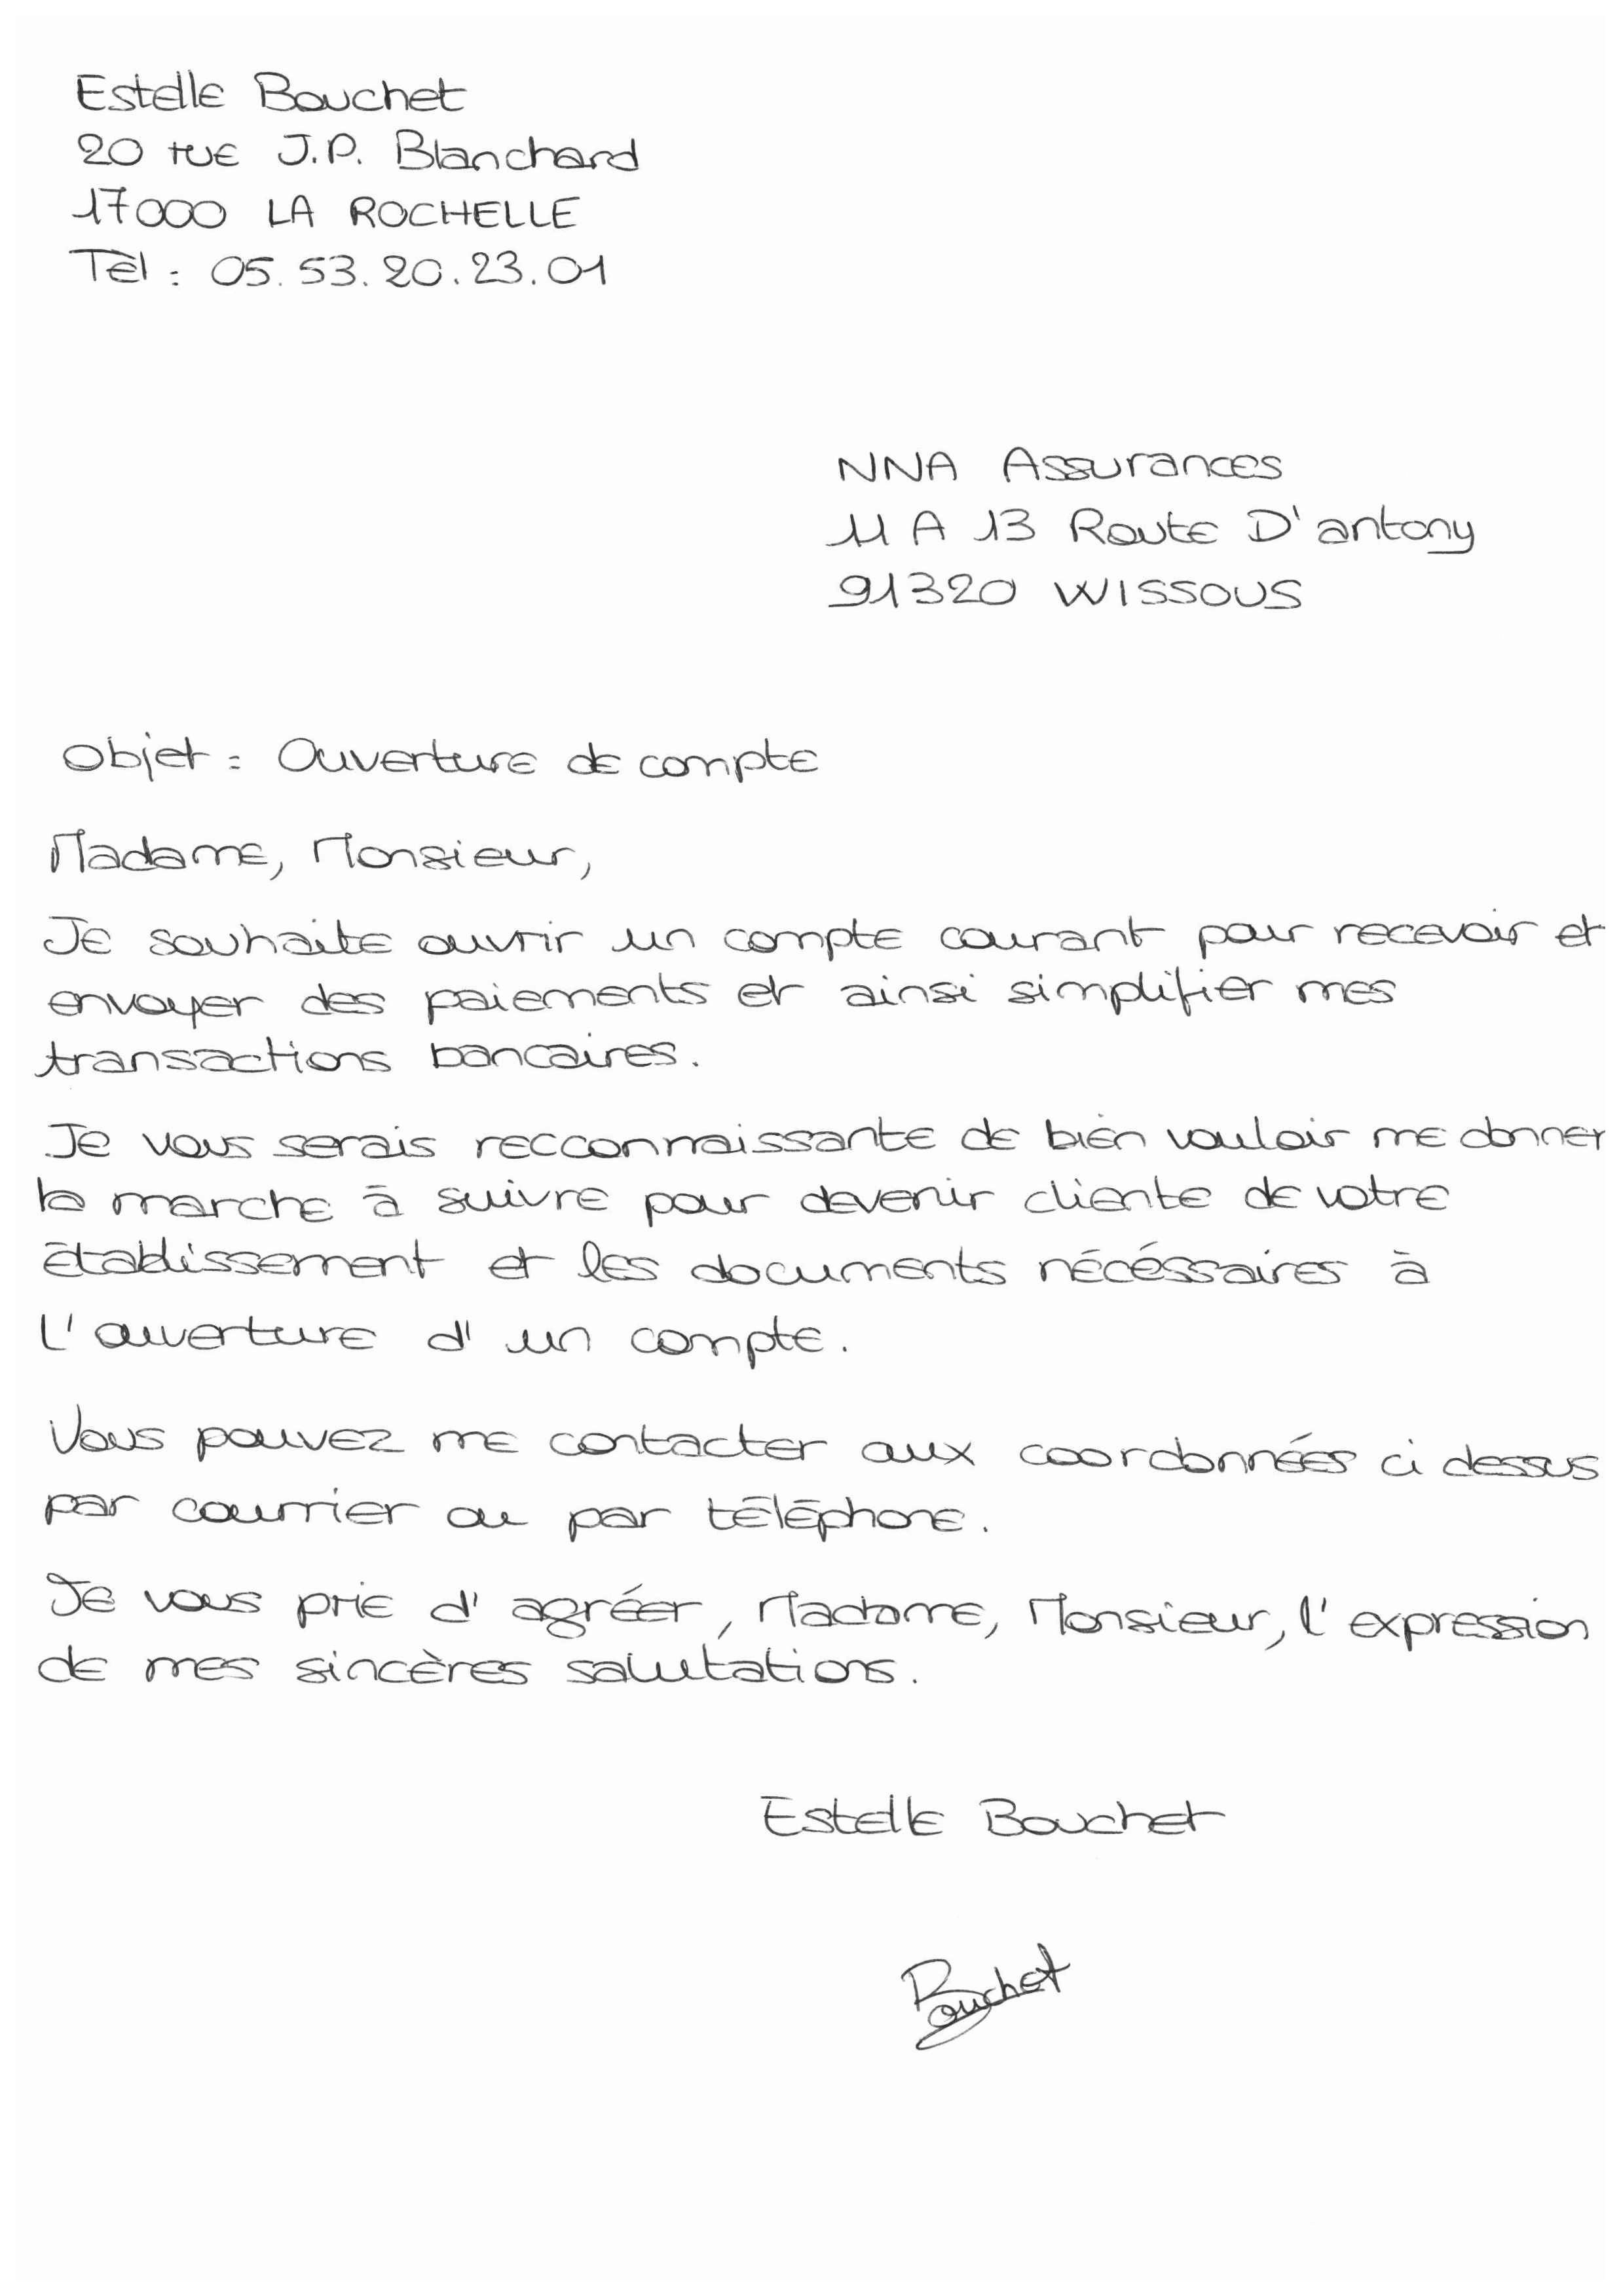 Estelle Bouchet
20 rue J.P. Blanchard
17000 LA ROCHELLE
Tèl : 05.53.20.23.01
NNA Assurances
11 A 13 Route D'antony
91320 WISSOUS
Objet : Ouverture de compte
Madame, Monsieur,
Je souhaite ouvrir un compte courant pour recevoir et
envoyer des paiements et ainsi simplifier mes
transactions bancaires.
Je vous serais recconnaissante de bien vouloir me donner
la marche à suivre pour devenir cliente de votre
établissement et les documents nécéssaires à
l'ouverture d'un compte.
Vous pouvez me contacter aux coordonnées ci dessus
par courrier ou par téléphone.
Je vous prie d'agréer, Madame, Monsieur, l'expression
de mes sincères salutations.
Estelle Bouchet
Bouchet